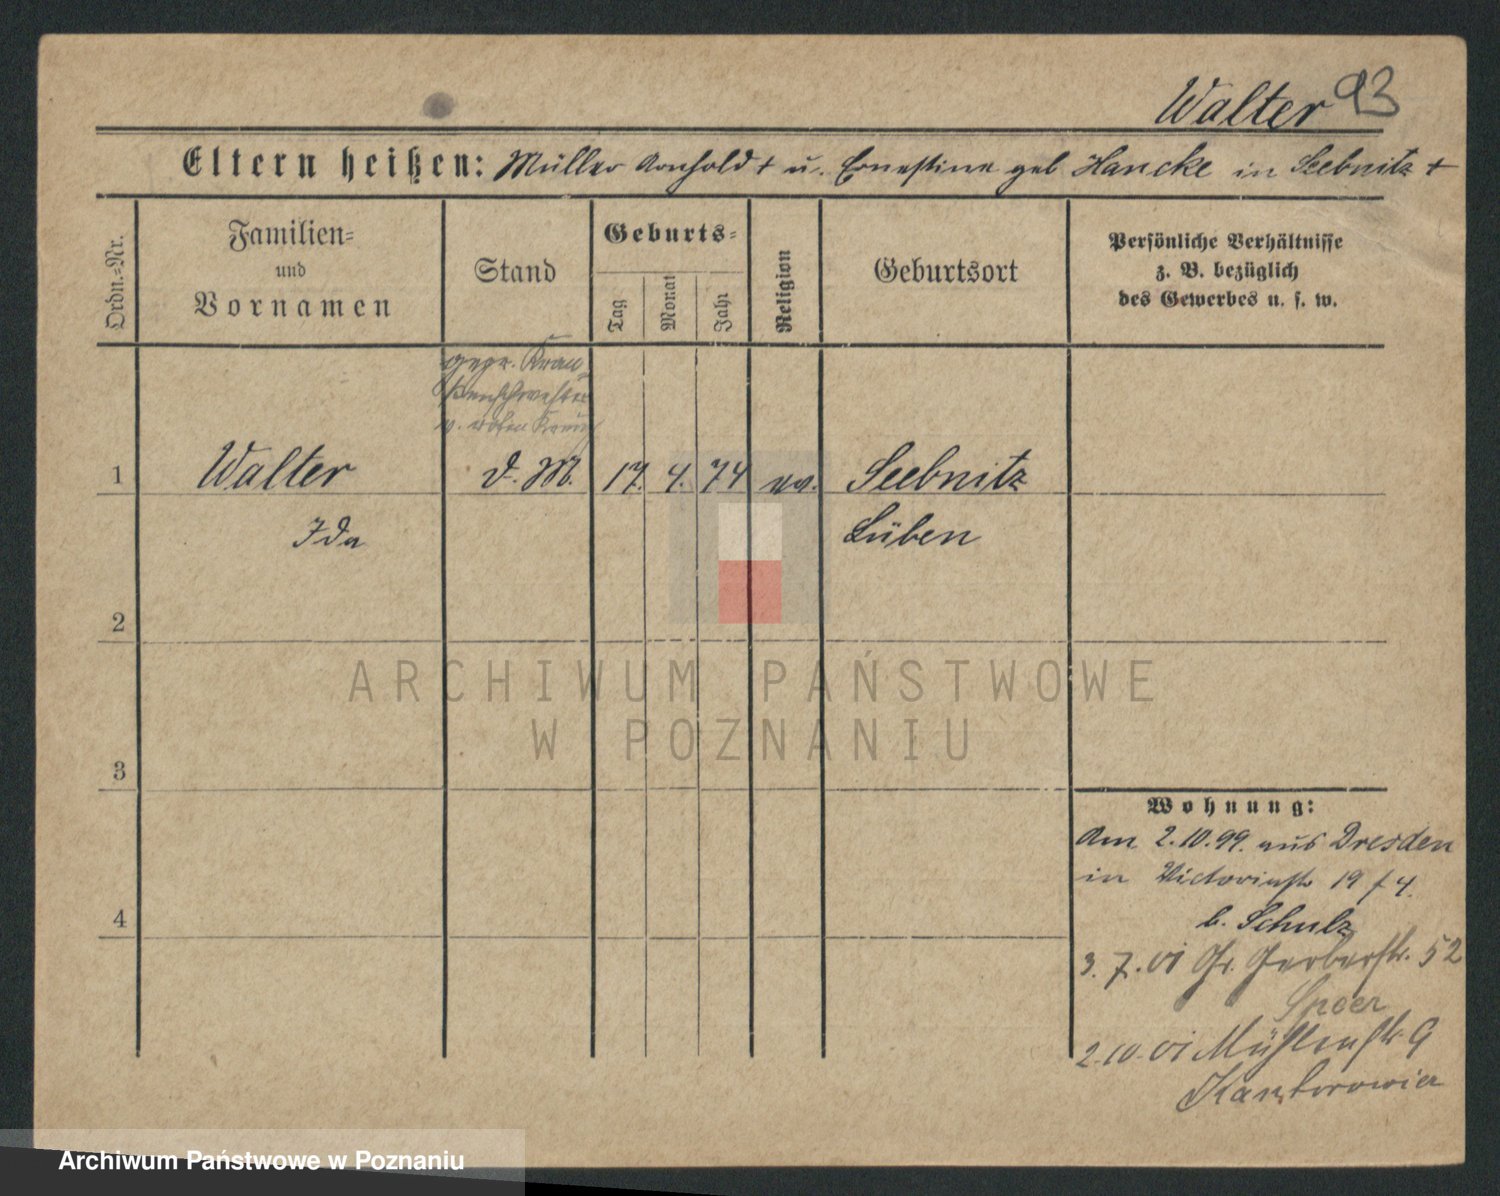 Walter 93
Eltern heißen: Müller Arnhold + u. Ernestine geb Hancke in Seebnitz +
Ordn.-Nr.
Familien- und Vornamen
Stand
Geburts-
Tag
Monat
Jahr
Religion
Geburtsort
Persönliche Verhältnisse
z. B. bezüglich
des Gewerbes u. s. w.
gepr. Kran-
kenschwester
v. rothen Kreuz
1 Walter d. M. 17. 4. 74 ev. Seebnitz
Ida Lüben
2
ARCHIWUM PAŃSTWOWE
W POZNANIU
3
Wohnung:
Am 2.10.99. aus Dresden
in Victoriastr 19 / 4.
b. Schulz
4
3. 7. 01 Gr. Gerberstr. 52
Speer
2.10.01 Mühlenstr. 9
Kantorowicz
Archiwum Państwowe w Poznaniu